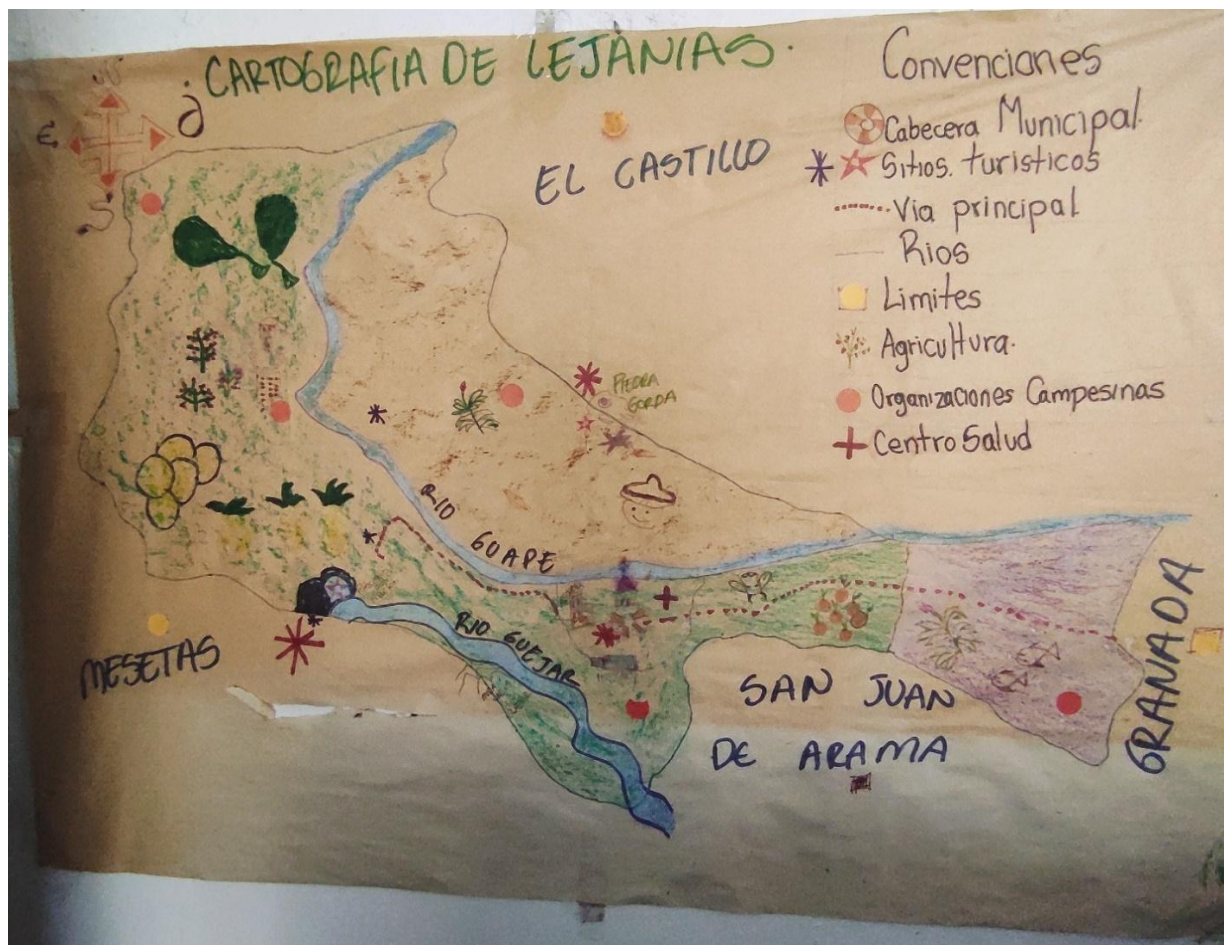 CARTOGRAFIA DE LEJANIAS.
Convenciones
Cabecera Municipal.
Sitios. turisticos
Via principal
Rios
Limites
Agricultura.
Organizaciones Campesinas
Centro Salud
E
S
EL CASTILLO
PIEDRA
GORDA
RIO GUAPE
RIO GUEJAR
MESETAS
SAN JUAN
DE ARAMA
GRANADA